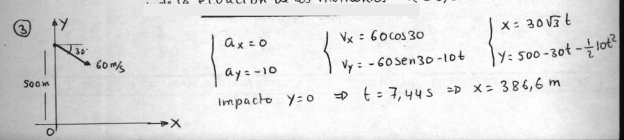 ③
Y
30°
60 m/s
500m
O
X
ax = 0
ay = -10
Vx = 60cos30
Vy = -60sen30-10t
x = 30√3 t
y = 500-30t-½10t²
Impacto y=0 ⇒ t = 7,44 s ⇒ x = 386,6 m